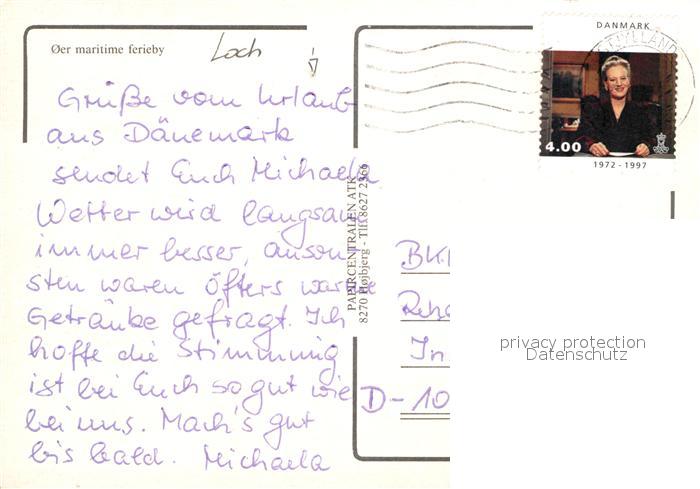 Øer maritime ferieby
Loch
DANMARK
JYLLAND
4.00
1972 - 1997
Grüße vom Urlaub
aus Dänemark
sendet Euch Michaela
Wetter wird langsam
immer besser, anson-
sten waren öfters warme
Getränke gefragt. Ich
hoffe die Stimmung
ist bei Euch so gut wie
bei uns. Mach's gut
bis bald. Michaela
PAPIRCENTRALEN ATK
8270 Højbjerg - Tlf. 8627 2366
BK
Reha
In
D-10
privacy protection
Datenschutz